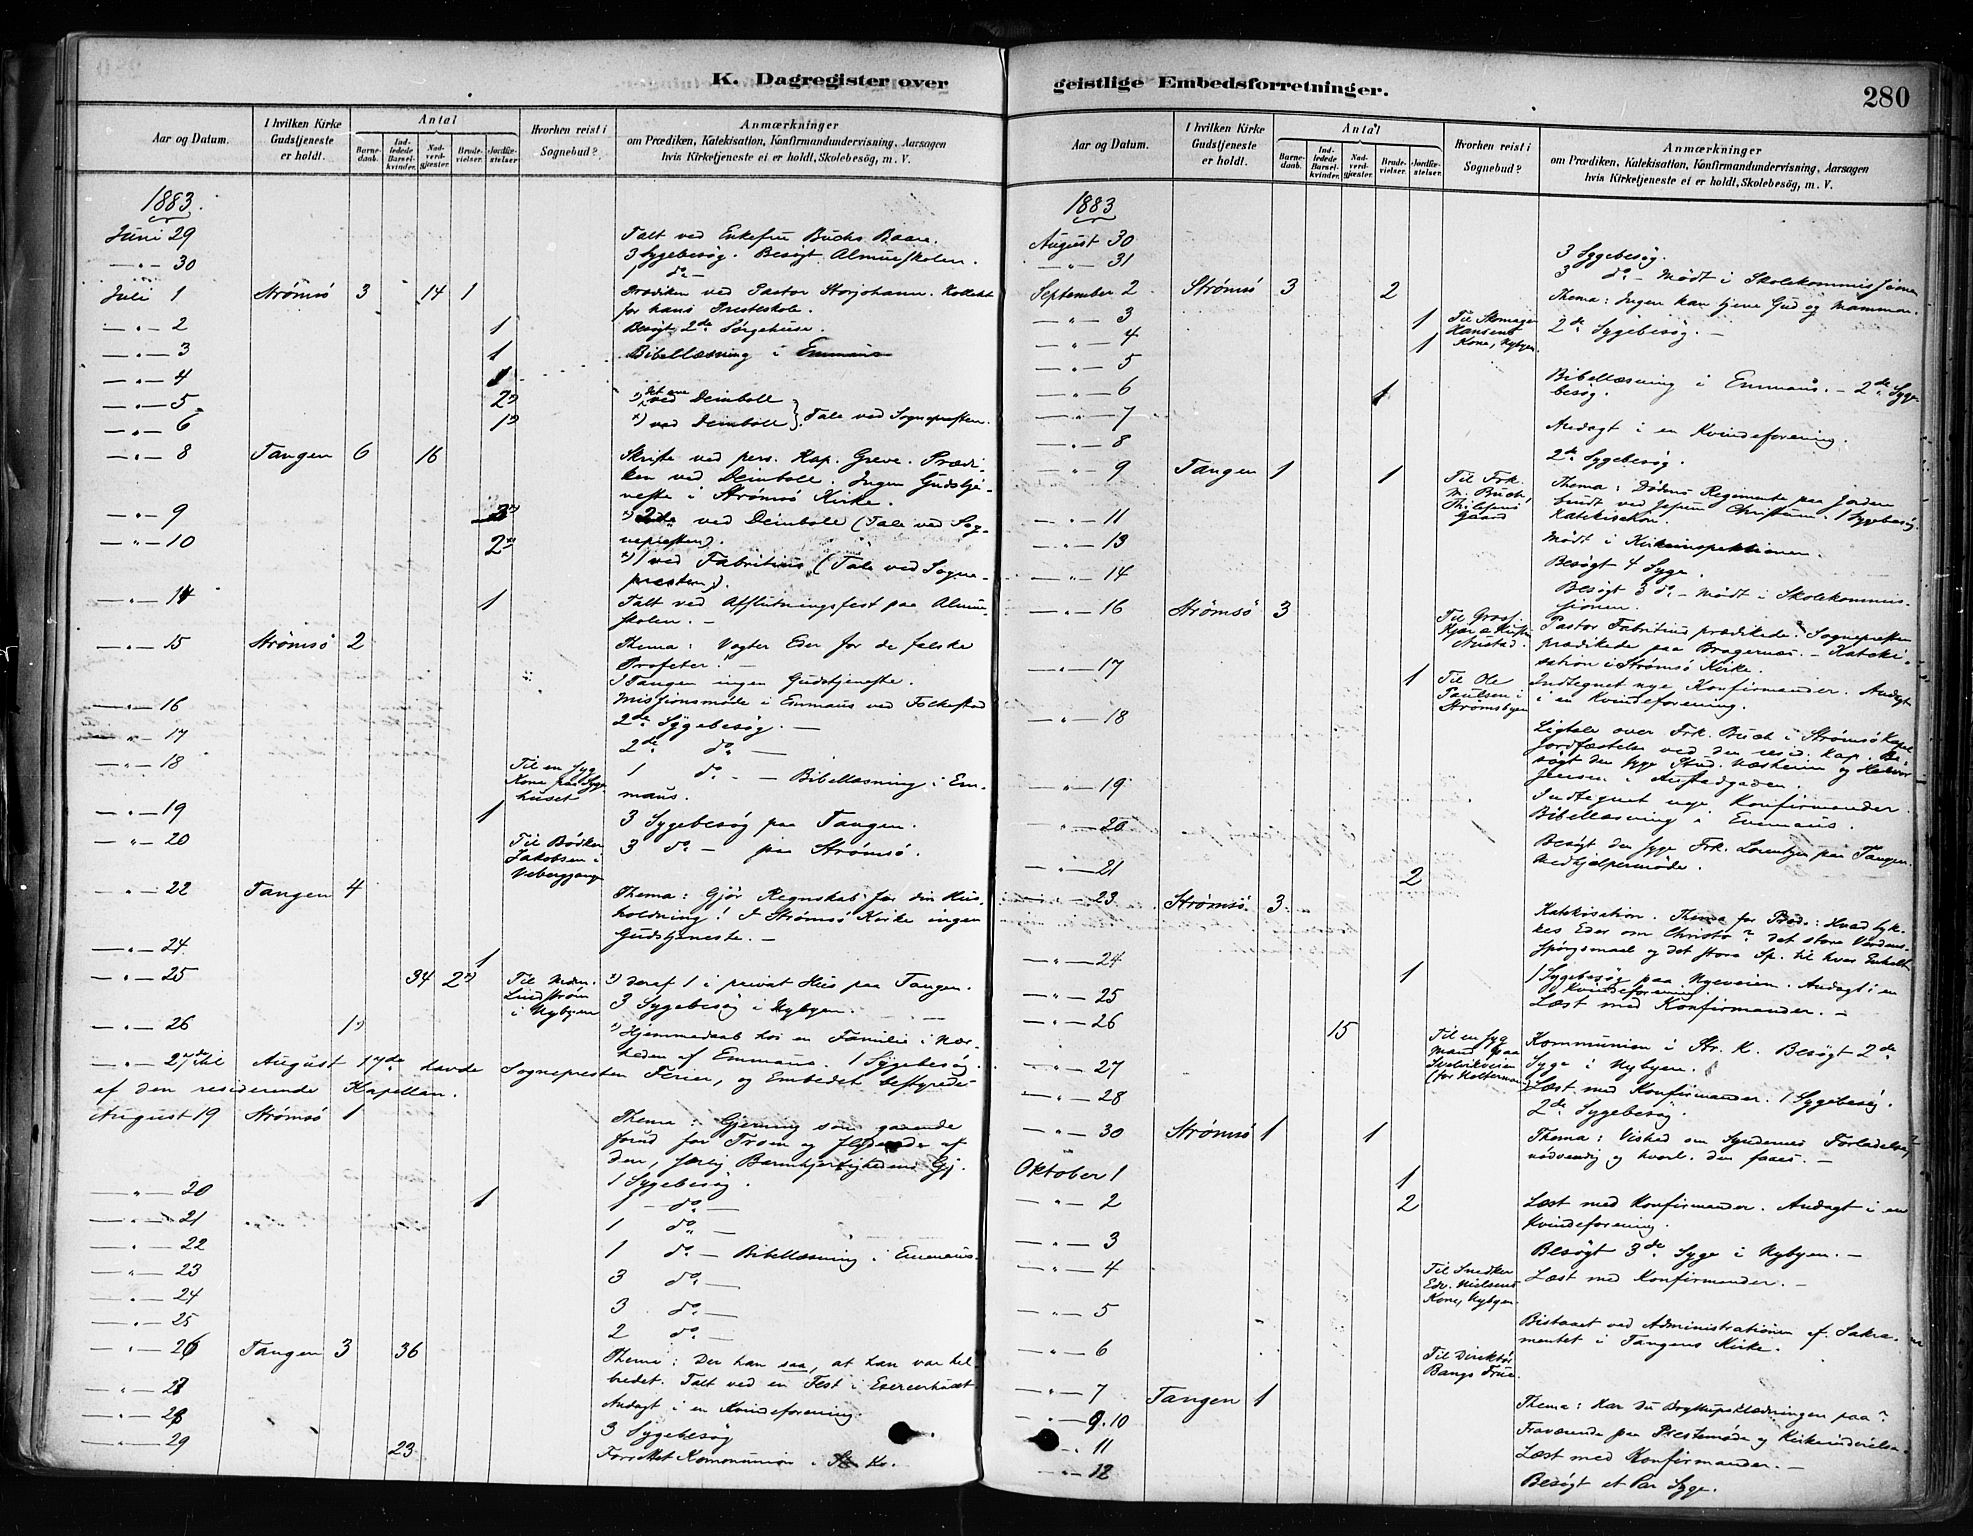 K. Dagregister over
Aar og Datum.
I hvilken Kirke Gudstjeneste er holdt.
Antal
Barnedaab.
Indledede Barselkvinder.
Nadverdgjester.
Brudevielser.
Jordfæstelser.
Hvorhen reist i Sognebud?
Anmærkninger
om Prædiken, Katekisation, Konfirmandundervisning, Aarsagen
hvis Kirketjeneste ei er holdt, Skolebesøg, m. V.
1883.
Juni 29 Talt ved Enkefru Buchs Baare.
— " — 30 3 Sygebesøg. Besøgt Almueskolen.
1 do —
Juli 1 Strømsø 3 14 1 Prædiken ved Pastor Storjohann. Kollekt
for hans Presteskole.
— " — 2 1 Besøgt 2de Sørgehuse.
— " — 3 1 Bibellæsning i Emmaus
— " — 4 1
— " — 5 2 1) det ene ved Deinboll
— " — 6 1 2) ved Deinboll } Tale ved Sognepresten.
— " — 8 Tangen 6 16 Skrifte ved pers. Kap. Greve. Prædi-
ken ved Deinboll. Ingen Gudstje-
neste i Strømsø Kirke.
— " — 9 ved Deinboll (Tale ved Sog-
nepresten).
— " — 10 2 1 ved Fabritius (Tale ved Sogne-
presten).
— " — 14 1 Talt ved Afslutningsfest paa Almue-
skolen. —
— " — 15 Strømsø 2 Thema: Vogter Eder for de falske
Profeter! —
I Tangen ingen Gudstjeneste.
— " — 16 Missionsmøde i Emmaus ved Folkestad
2de Sygebesøg. —
— " — 17 2de do —
— " — 18 Til en syg Kone paa Sygehuset 1 do — Bibellæsning i Em-
maus.
— " — 19 1 3 Sygebesøg paa Tangen.
— " — 20 Til Bødker Jakobsen i 3 do — paa Strømsø.
— " — 22 Tangen 4 Thema: Gjør Regnskab for din Hus-
holdning! I Strømsø Kirke ingen
Gudstjeneste. —
— " — 24 1
— " — 25 34 2 Lindstrøm i Nybyen deraf 1 i privat Hus paa Tangen.
3 Sygebesøg i Nybyen.
— " — 26 1 Hjemmedaab hos en Familie i Nær-
heden af Emmaus 1 Sygebesøg.
— " — 27de til August 17de havde Sognepresten Ferier, og Embedet bestyredes
af den residerende Kapellan.
August 19 Strømsø 1 Thema: Gjerning som gaaende
forud for Troen og flydende af
den, særlig Barmhjertighedens Gj.
1 Sygebesøg.
— " — 20 1 1 — do —
— " — 21 1 do —
— " — 22 1 do — Bibellæsning i Emmaus.
— " — 23 3 do —
— " — 24 3 do —
— " — 25 2 do —
— " — 26 Tangen 3 36 Thema: Der han saa, at han var hel-
bredet. Talt ved en Fest i Exercerhuset
— " — 27 Andagt i en Kvindeforening.
— " — 28 3 Sygebesøg
— " — 29 23 Forrettet Kommunion i St. K.
geistlige Embedsforretninger.
280
Aar og Datum.
I hvilken Kirke Gudstjeneste er holdt.
Antal
Barnedaab.
Indledede Barselkvinder.
Nadverdgjester.
Brudevielser.
Jordfæstelser.
Hvorhen reist i Sognebud?
Anmærkninger
om Prædiken, Katekisation, Konfirmandundervisning, Aarsagen
hvis Kirketjeneste ei er holdt, Skolebesøg, m. V.
1883
August 30 3 Sygebesøg.
— " — 31 3 do — Mødt i Skolekommissionen
September 2 Strømsø 3 2 Thema: Ingen kan tjene Gud og Mammon.
— " — 3 1 Til Skomager Hansens Kone, Nybyen. 2de Sygebesøg. —
— " — 4 1
— " — 5 Bibellæsning i Emmaus. — 2de Syge-
besøg.
— " — 6 1
— " — 7 Andagt i en Kvindeforening.
— " — 8 2de Sygebesøg.
— " — 9 Tangen 1 1 Til Frk. M. Buch, Gaard Thema: Dødens Regimente paa Jorden
brudt ved Jesum Christum. 1 Sygebesøg.
Katekisation.
— " — 11 Mødt i Kirkeinspektionen.
— " — 13 Besøgt 4 Syge.
— " — 14 Besøgt 3 do — Mødt i Skolekommis-
sionen.
— " — 16 Strømsø 3 Pastor Fabritius prædikede. Sognepresten
prædikede paa Bragernæs. — Kateki-
sation i Strømsø Kirke.
— " — 17 1 Til Ole Paulsen i Strømsbyen Indtegnet nye Konfirmander. Andagt
i en Kvindeforening.
— " — 18 Ligtale over Frk. Buch i Strømsø Kapel
Jordfæstelse ved den resid. Kap. Be-
søgt den syge Stud.
Jensen i Austadgaden.
— " — 19 Indtegnet nye Konfirmander.
Bibellæsning i Emmaus.
— " — 20 Besøgt den syge Frk. Lorentzen paa Tangen.
Medhjælpermøde.
— " — 21 2
— " — 23 Strømsø 3 Katekisation. Thema for Præd.: Hvad tyk-
kes Eder om Christo? det store Verdens-
Spørgsmaal og det store Sp. til hver Enkelt
— " — 24 1 1 Sygebesøg paa Nyeveien. Andagt i en
Kvindeforening.
— " — 25 Læst med Konfirmander. —
— " — 26 15 Til en syg Mand paa Svelvikveien Kommunion i Str. K. Besøgt 2de
Syge i Nybyen.
— " — 27 Læst med Konfirmander. 1 Sygebesøg.
— " — 28 2de Sygebesøg.
— " — 30 Strømsø 1 1 Thema: Vished om Syndernes Forladelse,
nødvendig og hvorl. den faaes. —
Oktober 1 1
— " — 2 2 Læst med Konfirmander. Andagt i en
Kvindeforening.
— " — 3 Besøgt 3de Syge i Nybyen. —
— " — 4 Til Snedker Edv. Nielsens Kone, Nybyen. Læst med Konfirmander. —
— " — 5 Bistaaet ved Administrationen af Sakra-
mentet i Tangens Kirke.
— " — 6 Til Direktør Bangs Frue
— " — 7 Tangen 1 Thema: Har du Bryllupsklædningen paa?
— " — 9.10 Fraværende paa Prestemøde og Kirkeindvielse.
— " — 11 Læst med Konfirmander. —
— " — 12 Besøgt et Par Syge.